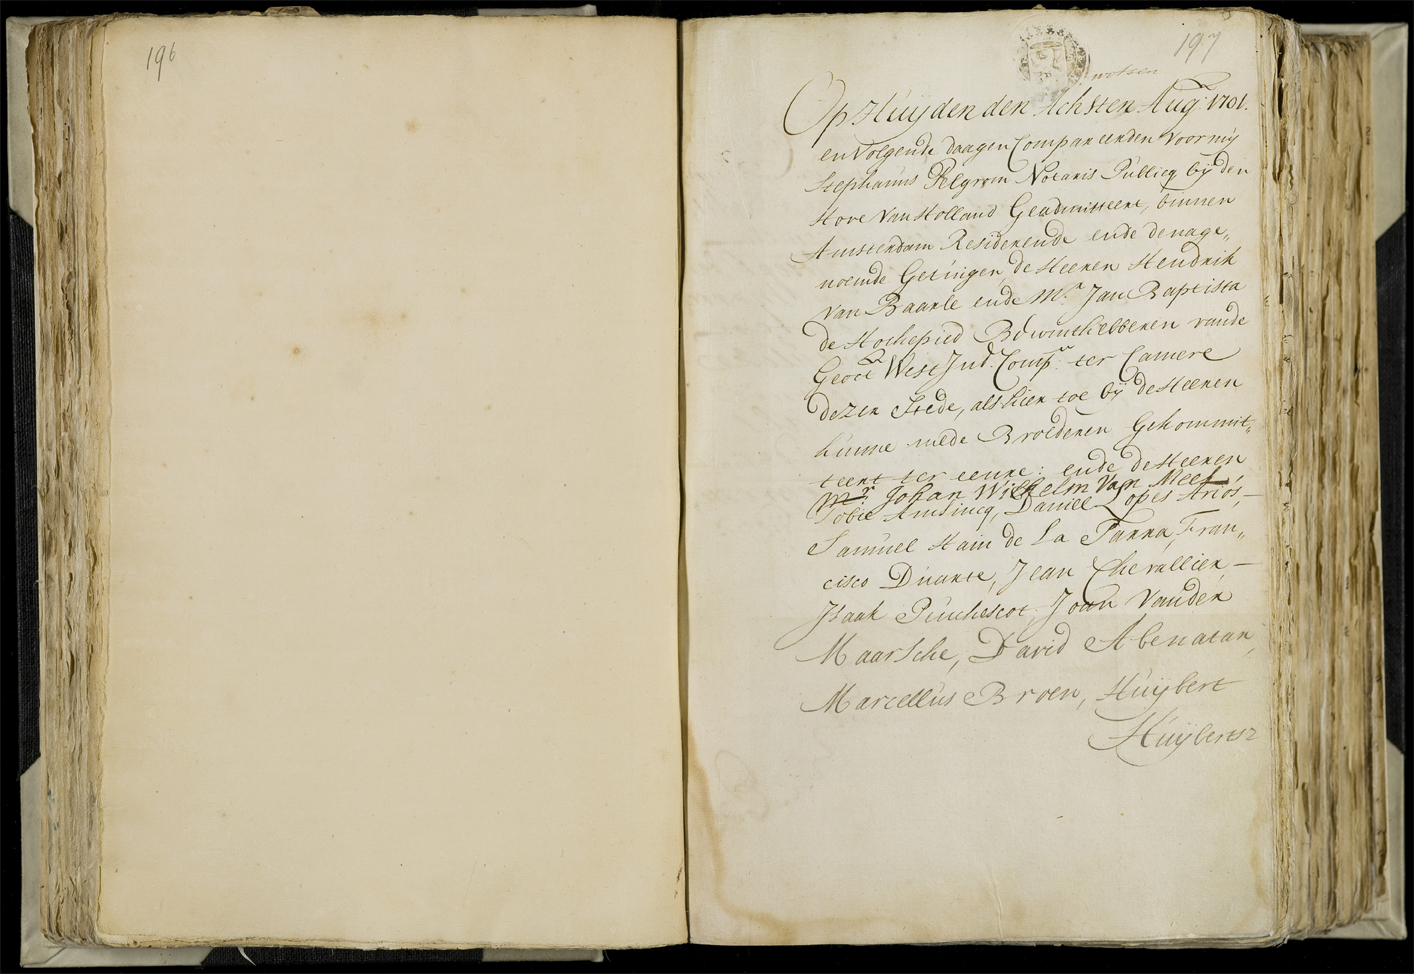 196
197
Op Huyden den Achsten Augs: 1701.
en volgende daagen Compareerden voor mij
Stephanus Pelgrom Notaris Publicq bij den
Hove van Holland Geadmitteert, binnen
Amsterdam Residerende ende de nage„
noemde Getuijgen, de Heeren Hendrik
van Baarle ende Mr. Jan Baptista
de Hochepied Bewinthebberen vande
Geoct. West Ind. Comp. ter Camere
dezer Stede, als hier toe bij de Heeren
hunne mede Broederen Gekommit„
teert ter eenre: ende de Heeren
Mr. Johan Wilhelm van Meel,
Tobie Amsincq, Daniel Lopes Arios,
Samuel Hain de La Tarra, Fran„
cisco Duarte, Jean Chevallier,
Isaak Puchescot, Joan vander
Maarsche, David Abenatar,
Marcellus Broen, Huijbert
Huijbertsz